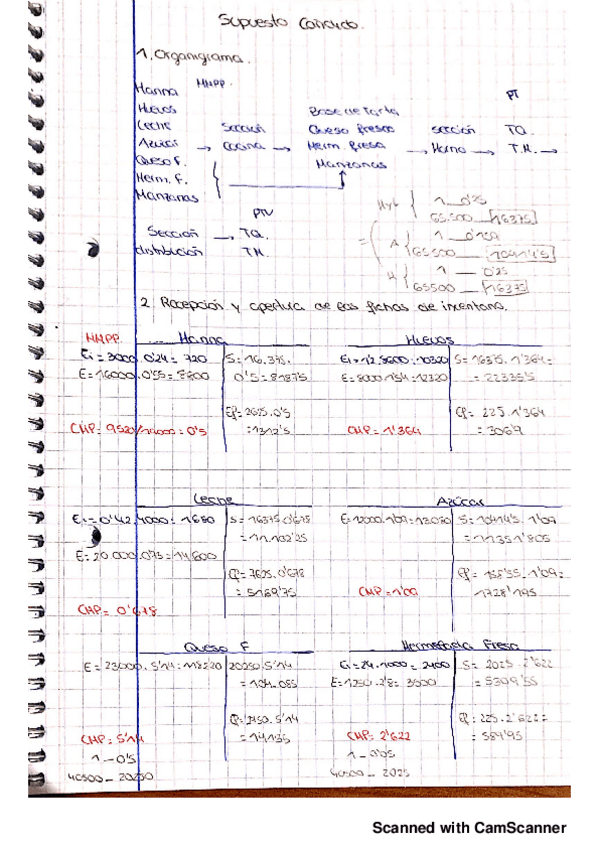 Supuesto
1. Organigrama.
MMPP.
PT
Harina
Huevos
Base de Tarta
Leche Sección Queso fresco sección TQ.
Azúcar → Cocina → Herm. fresa → Horno → T.M. →
Queso F.
Manzanas
Herm. F.
Manzanas
PTV
Sección → TQ.
distribución TM.
Hyh { 1 — 0'25
65.500 — 16375
= A { 1 — 0'159
65500 — 10414'5
H { 1 — 0'25
65500 — 16375
2. Recepción y apertura de las fichas de inventario.
MMPP. Harina
Ei = 3000. 0'24 = 720 S = 16.375.
E = 16000. 0'55 = 8800 0'5 = 8187'5
Ef = 2625. 0'5
= 1312'5
CMP = 9520/19000 = 0'5
Huevos
S = 16375. 1'364 =
= 22335'5
Ef = 225. 1'364
= 306'9
CMP = 1'364
Leche
Ei = 0'42. 4000 = 1680 S = 16375. 0'678
= 11.102'25
E = 20000. 0'73 = 14600
Ef = 7625. 0'678
= 5169'75
CMP = 0'678
Azúcar
E = 12000. 1'09 = 13080 S = 10414'5. 1'09
= 11351'805
Ef = 1585'5. 1'09 =
1728'195
CMP = 1'09
Queso F
E = 23000. 5'14 = 118220 20250. 5'14
= 104.085
Ef = 2750. 5'14
= 14135
CMP = 5'14
1 — 0'5
40500 — 20250
Hermelada Fresa
Ei = 2'4. 1000 = 2400 S = 2025. 2'622
E = 1250. 2'8 = 3500 = 5309'55
Ef = 225. 2'622 =
= 589'95
CMP = 2'622
1 — 0'05
40500 — 2025
Scanned with CamScanner